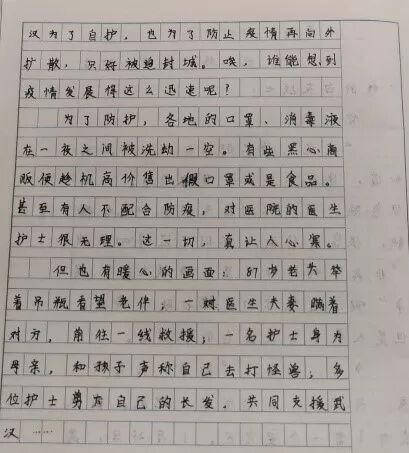 汉为了自护，也为了防止疫情再向外
扩散，只好被迫封城。唉，谁能想到
疫情发展得这么迅速呢？
为了防护，各地的口罩、消毒液
在一夜之间被洗劫一空。有些黑心商
贩便趁机高价售出假口罩或是食品。
甚至有人不配合防疫，对医院的医生
护士很无理。这一切，真让人心寒。
但也有暖心的画面：87岁老头举
着吊瓶看望老伴；一对医生夫妻瞒着
对方，前往一线救援；一名护士身为
母亲，和孩子声称自己去打怪兽；多
位护士剪去自己的长发。共同支援武
汉……